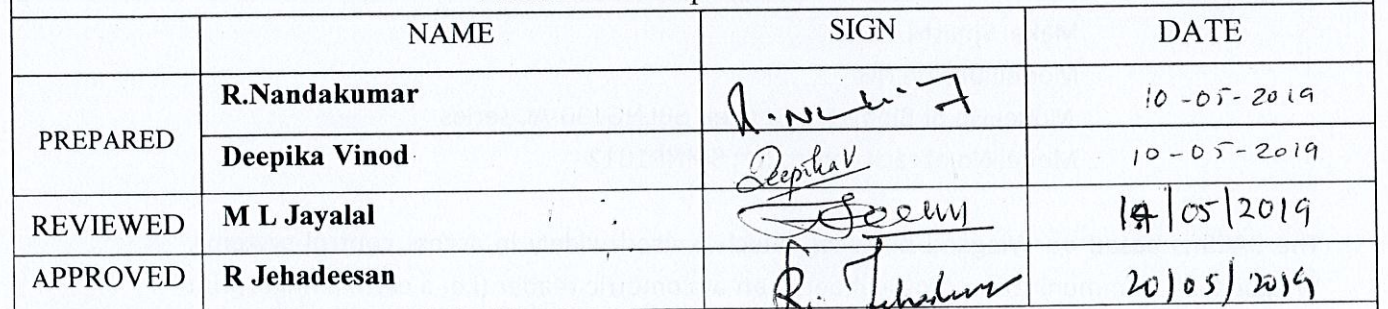 NAME SIGN DATE
PREPARED
R.Nandakumar 10-05-2019
Deepika Vinod DeepikaV 10-05-2019
REVIEWED M L Jayalal 05/2019
APPROVED R Jehadeesan 20/05/2019